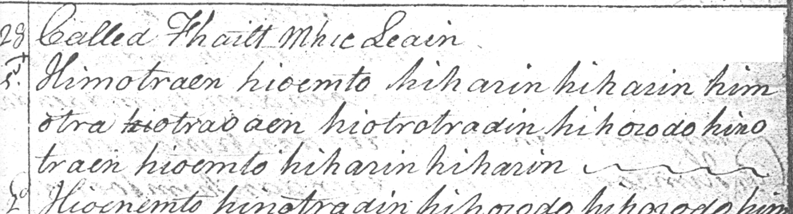 28 Called Fhailt Mhic Leain
1st Himotraen hioemto hiharin hiharin him
otra hiotraoaen hiotrotradin hihorodo hino
traen hioemto hiharin hiharin
2d Hioenemto hinotradin hihorodo hihorodo him